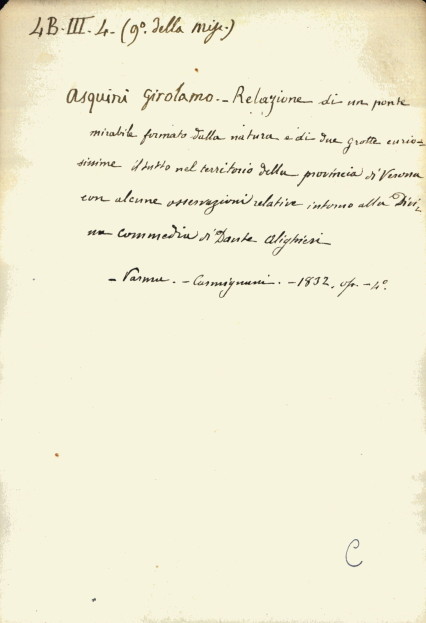 4B. III. 4. (9°. della Misc.)
Asquini Girolamo. - Relazione di un ponte
mirabile formato dalla natura e di due grotte curio-
sissime il tutto nel territorio della provincia di Verona
con alcune osservazioni relative intorno alla Divi-
na commedia di Dante Alighieri
- Parma. - Carmignani. - 1832. op. - 4°.
C